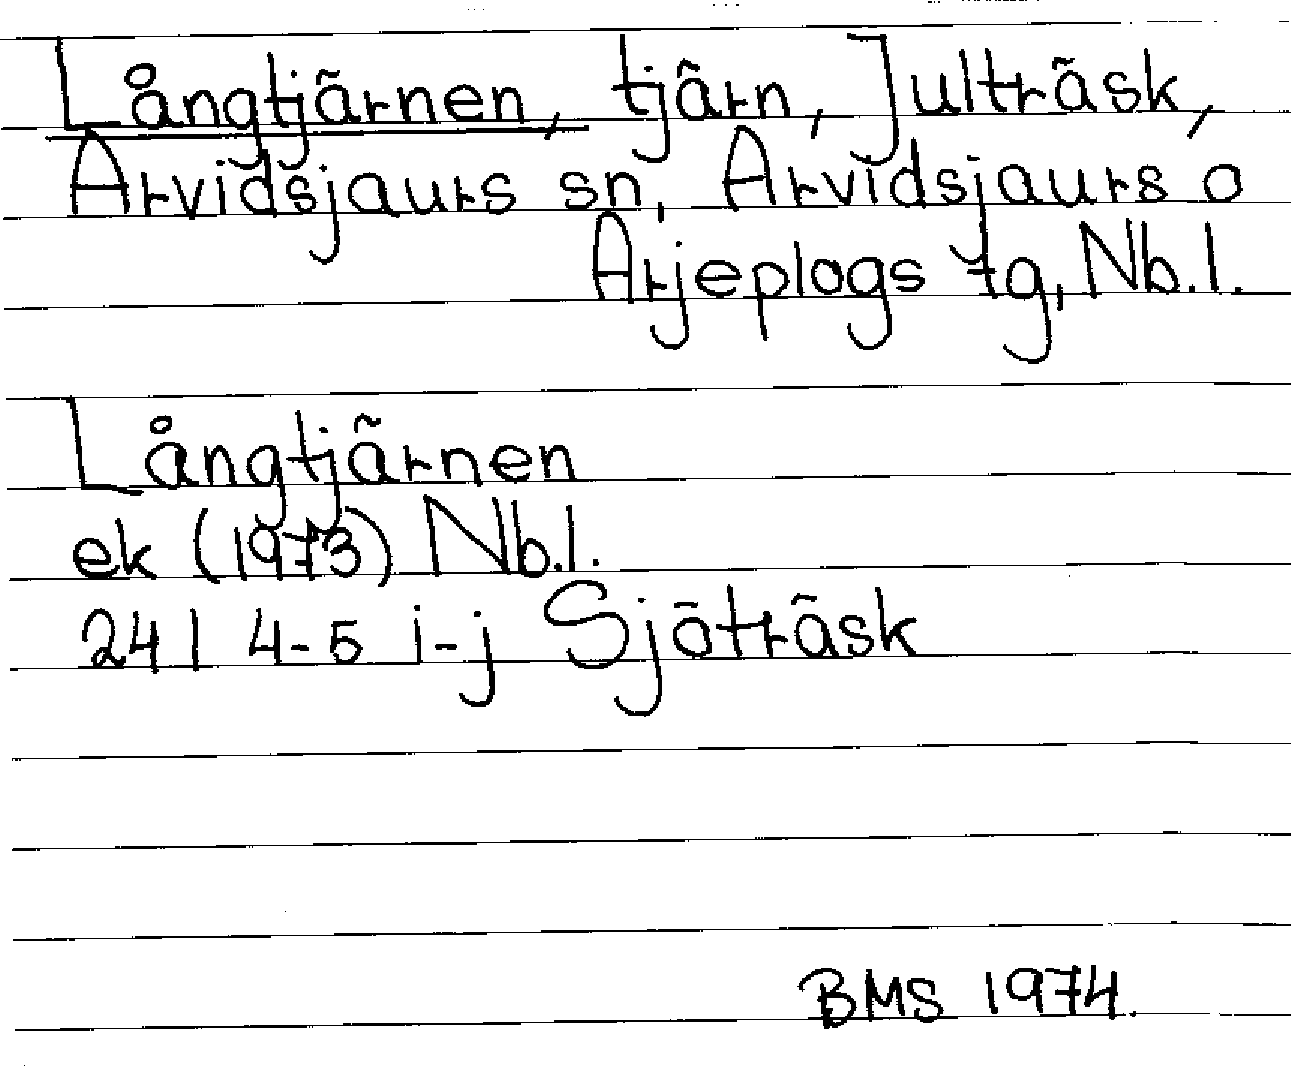 Långtjärnen, tjärn, Julträsk,
Arvidsjaurs sn, Arvidsjaurs o
Arjeplogs tg, Nb.l.
Långtjärnen
ek (1973) Nb.l.
24 I 4-5 i-j Sjöträsk
BMS 1974.